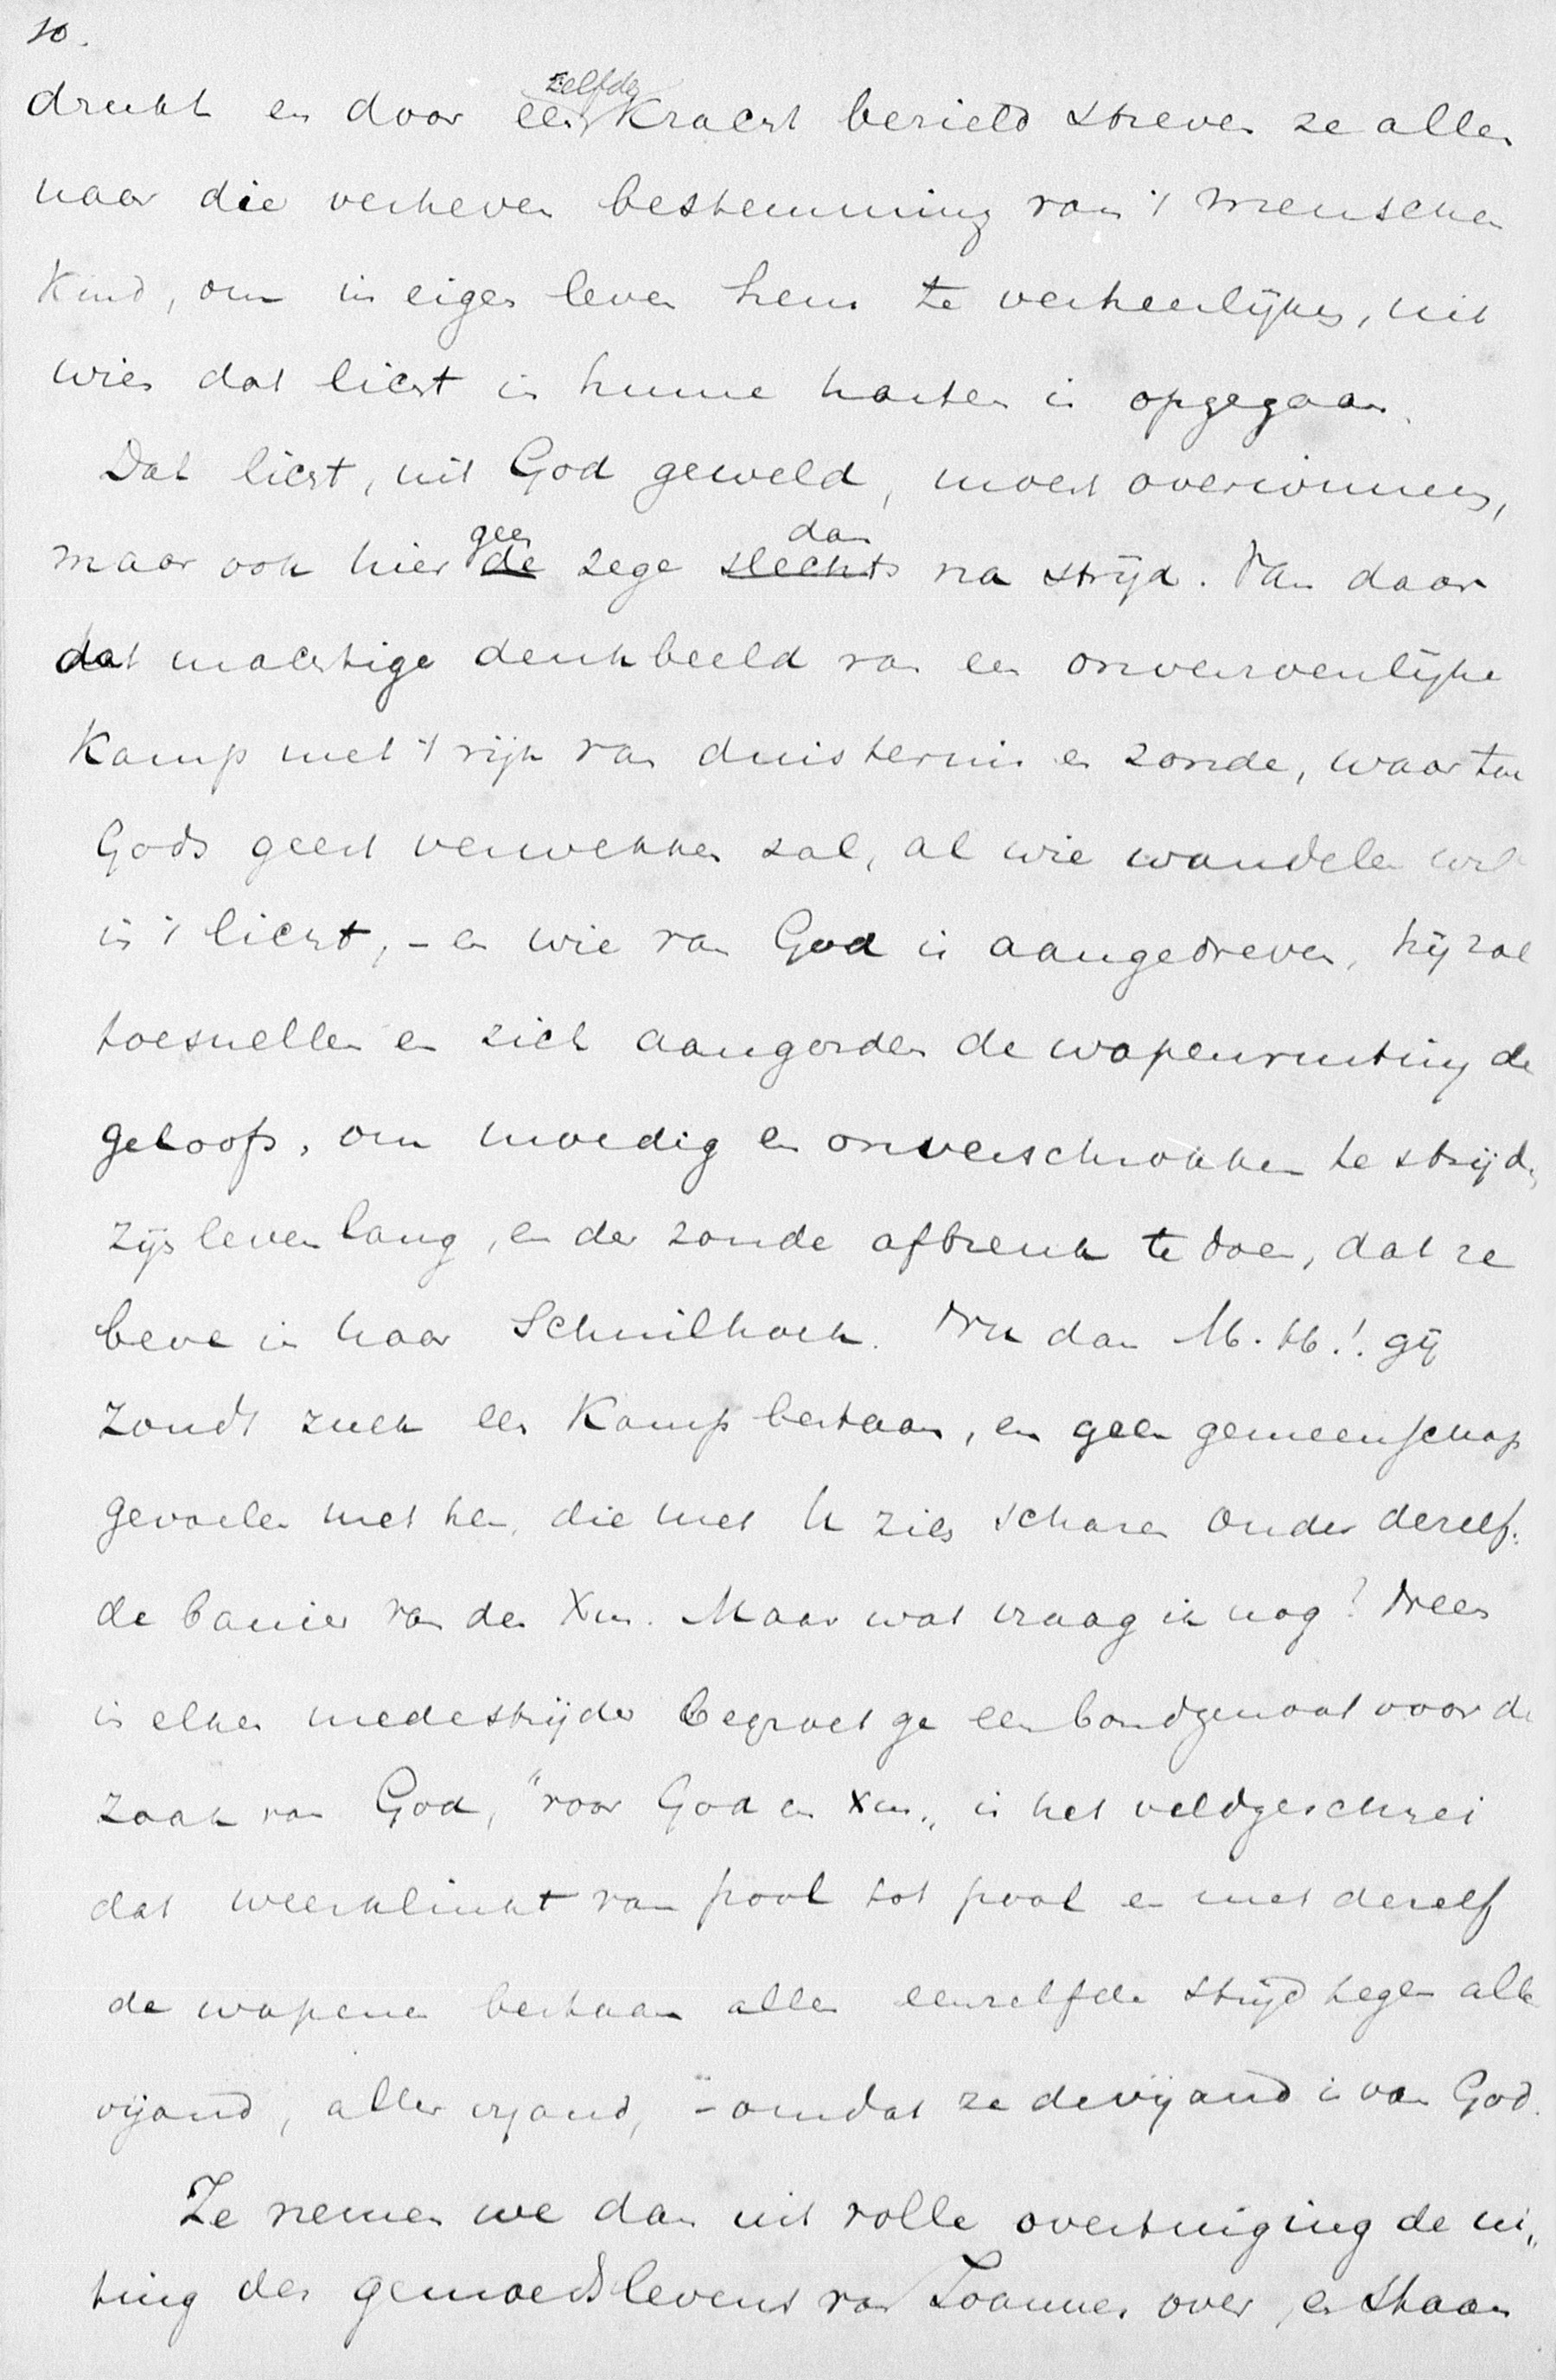 10.
drukt en door een zelfde kracht bezield streven ze allen
naar die verheven bestemming van 't menschen
kind, om in eigen leven hem te verheerlijken, uit
wien dat licht in hunne harten is opgegaan.
Dat licht, uit God geweld, moest overwinnen,
maar ook hier geen de zege dan slechts na strijd. Van daar
dat machtige denkbeeld van een onverzoenlijke
kamp met 't rijk van duisternis en zonde, waar toe
Gods geest verwekken zal, al wie wandelen wil
in 't licht, - en wie van God is aangedreven, hij zal
toesnellen en zich aangorden de wapenrusting des
geloofs, om moedig en onverschrokken te strijden
zijn leven lang, en der zonde afbreuk te doen, dat ze
beve in haar schuilhoek. Nu dan M. H.! gij
zoudt zulk een kamp bestaan, en geen gemeenschap
gevoelen met hen, die met U zich scharen onder dezelf-
de banier van den Xus. Maar wat vraag ik nog? Neen
in elken medestrijder begroet ge een bondgenoot voor de
zaak van God, "voor God en Xus„ is het veldgeschrei
dat weerklinkt van pool tot pool en met dezelf
de wapenen bestaan allen eenzelfde strijd tegen aller
vijand, aller vijand, - omdat ze de vijand is van God.
Zo nemen we dan uit volle overtuiging de ui„
ting des gemoedslevens van Joannes over, en staan